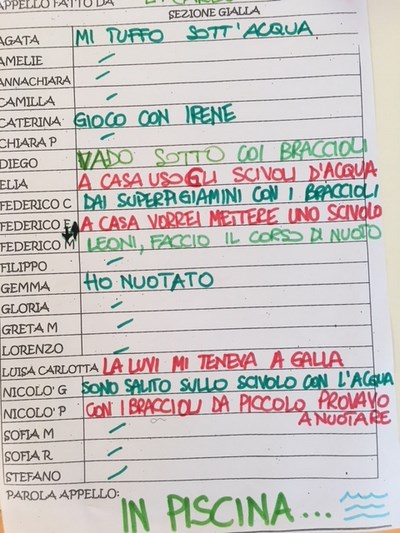 APPELLO FATTO DA
SEZIONE GIALLA
AGATA MI TUFFO SOTT'ACQUA
AMELIE
ANNACHIARA
CAMILLA
CATERINA GIOCO CON IRENE
CHIARA P
DIEGO VADO SOTTO COI BRACCIOLI
ELIA A CASA USO GLI SCIVOLI D'ACQUA
FEDERICO C DAI SUPERPIGIAMINI CON I BRACCIOLI
FEDERICO F A CASA VORREI METTERE UNO SCIVOLO
FEDERICO M LEONI, FACCIO IL CORSO DI NUOTO
FILIPPO
GEMMA HO NUOTATO
GLORIA
GRETA M
LORENZO
LUISA CARLOTTA LA LUVI MI TENEVA A GALLA
NICOLO' G SONO SALITO SULLO SCIVOLO CON L'ACQUA
NICOLO' P CON I BRACCIOLI DA PICCOLO PROVAVO
A NUOTARE
SOFIA M
SOFIA R.
STEFANO
PAROLA APPELLO: IN PISCINA...